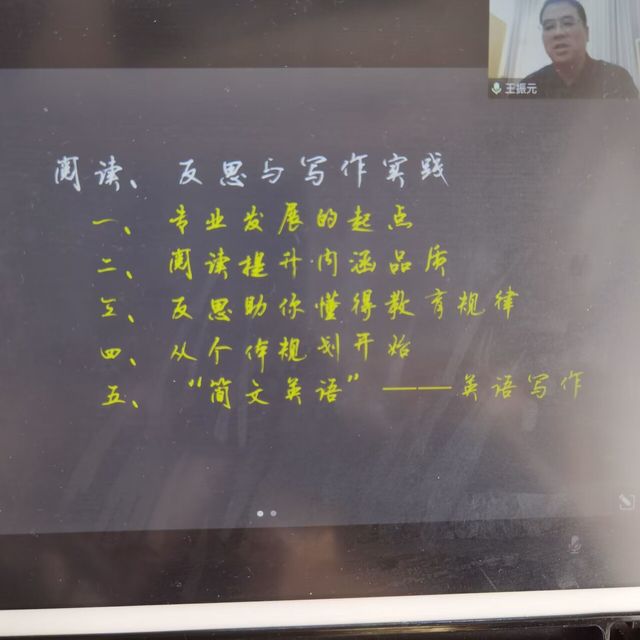 王振元
阅读、反思与写作实践
一、专业发展的起点
二、阅读提升内涵品质
三、反思助你懂得教育规律
四、从个体规划开始
五、“简文英语”——英语写作